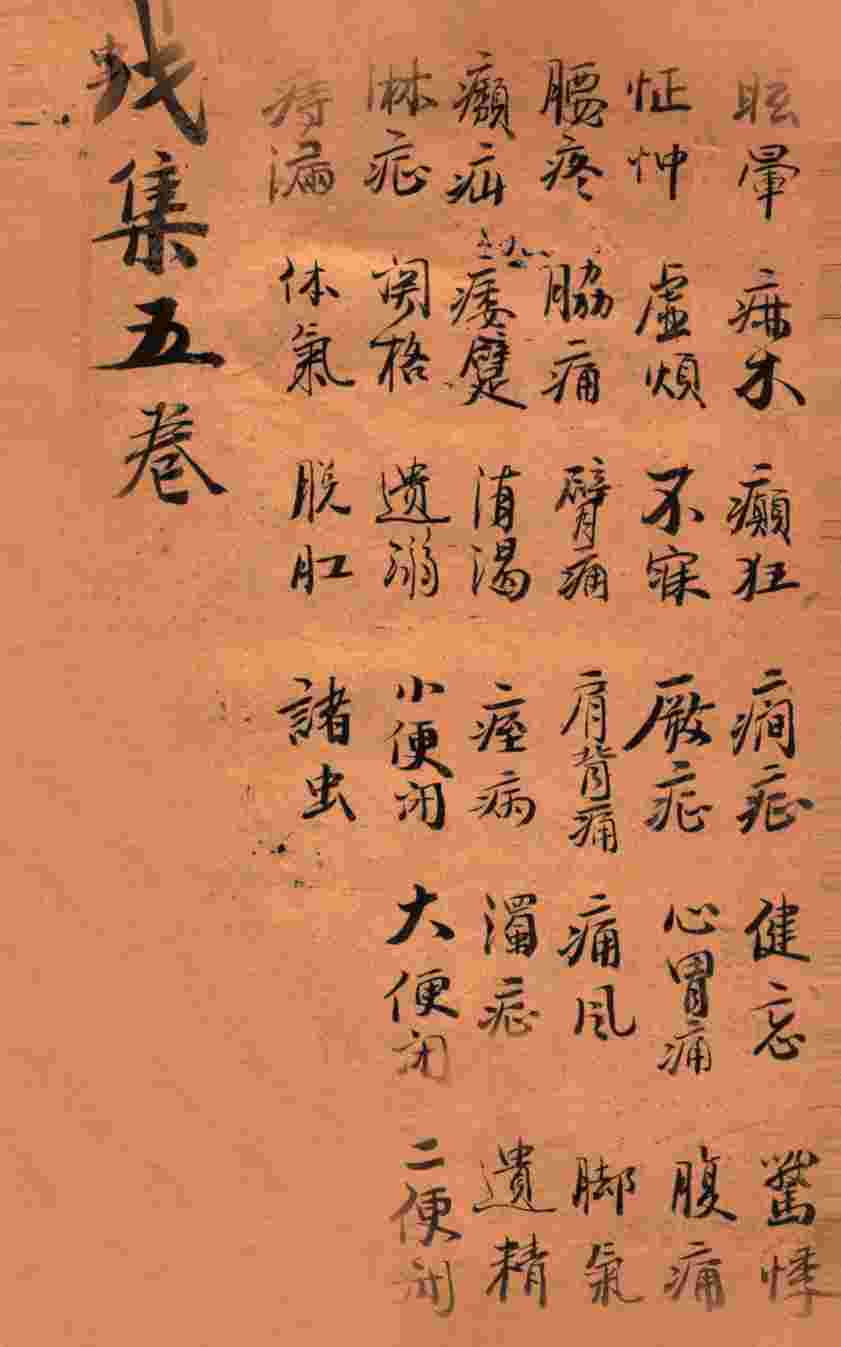 眩暈 痳木 癲狂 癇症 健忘 驚悸
怔忡 虛煩 不寐 厥症 心胃痛 腹痛
腰疼 脇痛 臂痛 肩背痛 痛风 脚氣
癩疝 痿躄 消渴 痙病 濁症 遺精
淋症 関格 遗溺 小便闭 大便闭 二便闭
痔漏 体氣 脱肛 諸虫
集五卷